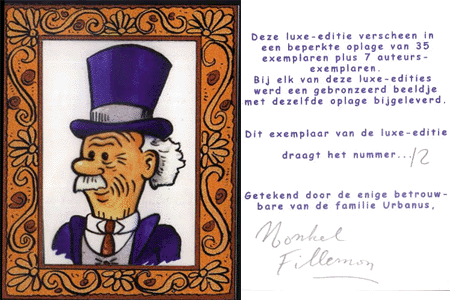 Deze luxe-editie verscheen in
een beperkte oplage van 35
exemplaren plus 7 auteurs-
exemplaren.
Bij elk van deze luxe-edities
werd een gebronzeerd beeldje
met dezelfde oplage bijgeleverd.
Dit exemplaar van de luxe-editie
draagt het nummer...12
Getekend door de enige betrouw-
bare van de familie Urbanus,
Nonkel
Fillemon